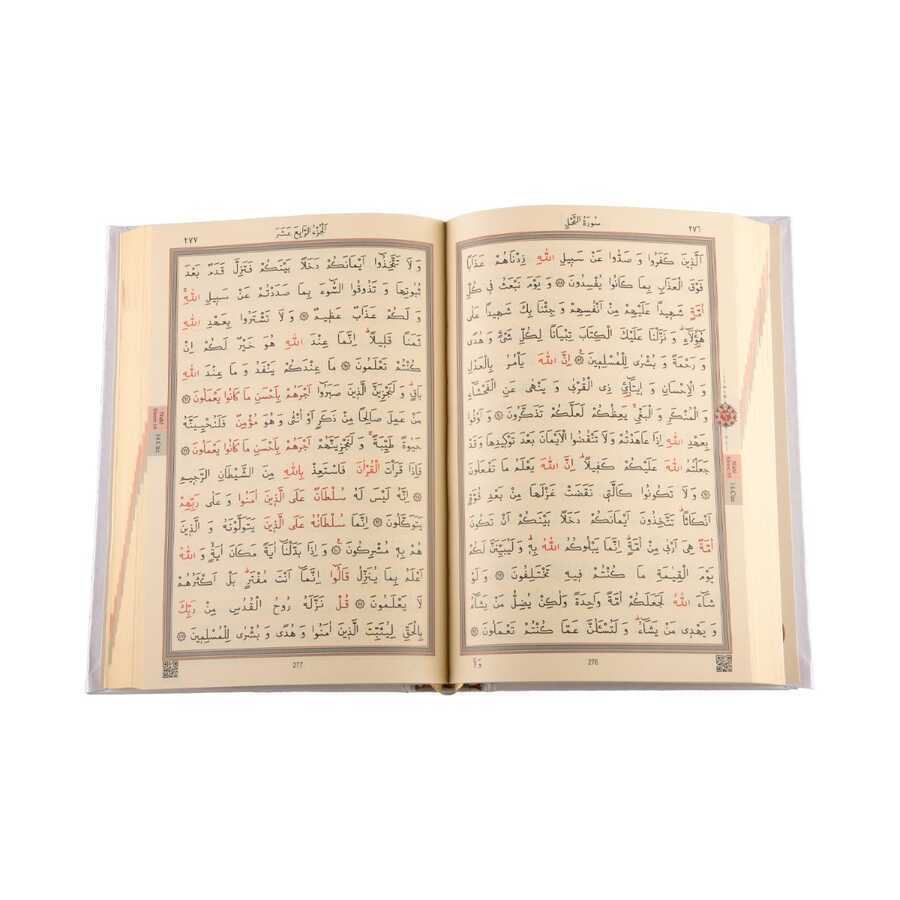 سُورَةُ النَّحْلِ ٢٧٦
اَلَّذ۪ينَ كَفَرُوا وَ صَدُّوا عَنْ سَب۪يلِ اللّٰهِ زِدْنَاهُمْ عَذَابًا
فَوْقَ الْعَذَابِ بِمَا كَانُوا يُفْسِدُونَ ۝ وَ يَوْمَ نَبْعَثُ ف۪ي كُلِّ
اُمَّةٍ شَه۪يدًا عَلَيْهِمْ مِنْ اَنْفُسِهِمْ وَ جِئْنَا بِكَ شَه۪يدًا عَلٰى
هٰٓؤُ۬لَٓاءِ وَ نَزَّلْنَا عَلَيْكَ الْكِتَابَ تِبْيَانًا لِكُلِّ شَيْءٍ وَ هُدًى
وَ رَحْمَةً وَ بُشْرٰى لِلْمُسْلِم۪ينَ ۝ اِنَّ اللّٰهَ يَأْمُرُ بِالْعَدْلِ
وَ الْاِحْسَانِ وَ ا۪يتَٓائِ ذِي الْقُرْبٰى وَ يَنْهٰى عَنِ الْفَحْشَٓاءِ
وَ الْمُنْكَرِ وَ الْبَغْيِ يَعِظُكُمْ لَعَلَّكُمْ تَذَكَّرُونَ ۝ وَ اَوْفُوا
بِعَهْدِ اللّٰهِ اِذَا عَاهَدْتُمْ وَ لَا تَنْقُضُوا الْاَيْمَانَ بَعْدَ تَوْك۪يدِهَا وَ قَدْ
جَعَلْتُمُ اللّٰهَ عَلَيْكُمْ كَف۪يلًا اِنَّ اللّٰهَ يَعْلَمُ مَا تَفْعَلُونَ
۝ وَ لَا تَكُونُوا كَالَّت۪ي نَقَضَتْ غَزْلَهَا مِنْ بَعْدِ قُوَّةٍ
اَنْكَاثًا تَتَّخِذُونَ اَيْمَانَكُمْ دَخَلًا بَيْنَكُمْ اَنْ تَكُونَ
اُمَّةٌ هِيَ اَرْبٰى مِنْ اُمَّةٍ اِنَّمَا يَبْلُوكُمُ اللّٰهُ بِه۪ وَ لَيُبَيِّنَنَّ لَكُمْ
يَوْمَ الْقِيٰمَةِ مَا كُنْتُمْ ف۪يهِ تَخْتَلِفُونَ ۝ وَ لَوْ
شَٓاءَ اللّٰهُ لَجَعَلَكُمْ اُمَّةً وَاحِدَةً وَلٰكِنْ يُضِلُّ مَنْ يَشَٓاءُ
وَ يَهْد۪ي مَنْ يَشَٓاءُ وَ لَتُسْـَٔلُنَّ عَمَّا كُنْتُمْ تَعْمَلُونَ ۝
276 وَلَا
Nahl
٢٧٧ اَلْجُزْءُ الرَّابِعَ عَشَرَ
وَ لَا تَتَّخِذُٓوا اَيْمَانَكُمْ دَخَلًا بَيْنَكُمْ فَتَزِلَّ قَدَمٌ بَعْدَ
ثُبُوتِهَا وَ تَذُوقُوا السُّٓوءَ بِمَا صَدَدْتُمْ عَنْ سَب۪يلِ اللّٰهِ
وَ لَكُمْ عَذَابٌ عَظ۪يمٌ ۝ وَ لَا تَشْتَرُوا بِعَهْدِ اللّٰهِ
ثَمَنًا قَل۪يلًا اِنَّمَا عِنْدَ اللّٰهِ هُوَ خَيْرٌ لَكُمْ اِنْ
كُنْتُمْ تَعْلَمُونَ ۝ مَا عِنْدَكُمْ يَنْفَدُ وَ مَا عِنْدَ اللّٰهِ
بَاقٍ وَ لَنَجْزِيَنَّ الَّذ۪ينَ صَبَرُٓوا اَجْرَهُمْ بِاَحْسَنِ مَا كَانُوا يَعْمَلُونَ
۝ مَنْ عَمِلَ صَالِحًا مِنْ ذَكَرٍ اَوْ اُنْثٰى وَ هُوَ مُؤْمِنٌ فَلَنُحْيِيَنَّهُ
حَيٰوةً طَيِّبَةً وَ لَنَجْزِيَنَّهُمْ اَجْرَهُمْ بِاَحْسَنِ مَا كَانُوا يَعْمَلُونَ
۝ فَاِذَا قَرَأْتَ الْقُرْاٰنَ فَاسْتَعِذْ بِاللّٰهِ مِنَ الشَّيْطَانِ الرَّج۪يمِ
۝ اِنَّهُ لَيْسَ لَهُ سُلْطَانٌ عَلَى الَّذ۪ينَ اٰمَنُوا وَ عَلٰى رَبِّهِمْ
يَتَوَكَّلُونَ ۝ اِنَّمَا سُلْطَانُهُ عَلَى الَّذ۪ينَ يَتَوَلَّوْنَهُ وَ الَّذ۪ينَ
هُمْ بِه۪ مُشْرِكُونَ ۝ وَ اِذَا بَدَّلْنَٓا اٰيَةً مَكَانَ اٰيَةٍ وَ اللّٰهُ
اَعْلَمُ بِمَا يُنَزِّلُ قَالُٓوا اِنَّمَٓا اَنْتَ مُفْتَرٍ بَلْ اَكْثَرُهُمْ
لَا يَعْلَمُونَ ۝ قُلْ نَزَّلَهُ رُوحُ الْقُدُسِ مِنْ رَبِّكَ
بِالْحَقِّ لِيُثَبِّتَ الَّذ۪ينَ اٰمَنُوا وَ هُدًى وَ بُشْرٰى لِلْمُسْلِم۪ينَ ۝
277
Nahl